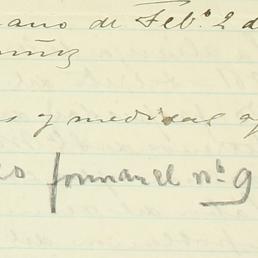 ano de Feb.º 2 d
s y medidas q
forman el nº 9